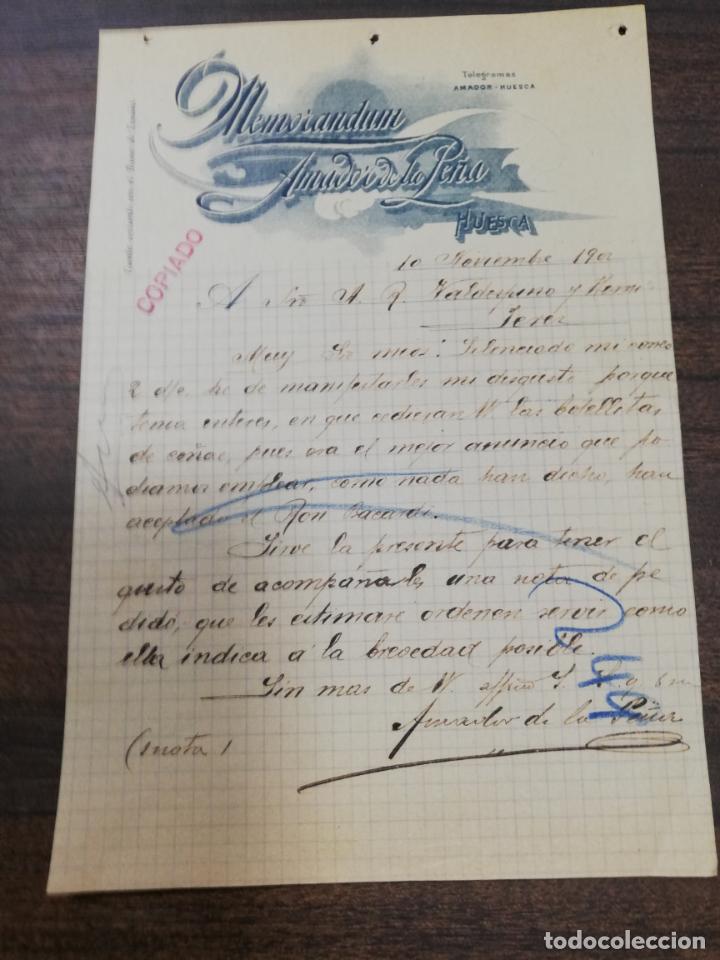 Telegramas
AMADOR - HUESCA
Memorandum
Amador de la Peña
HUESCA
COPIADO
10 Noviembre 190
A Sres A. R. Valdespino y Hermo
Jerez
Muy Srs mios: Silenciado mi
2 de he de manifestarles mi disgusto, porque
tenia interes, en que cedieran V. las botellitas
de coñac, pues era el mejor anuncio que po-
diamos emplear, como nada han dicho, han
aceptado el Ron Bacardi.
Sirve la presente para tener el
gusto de acompañarles una nota de pe
dido, que les estimaré ordenen servir como
ella indica á la brevedad posible.
Sin mas de V. affmo S. S. q s m
Amador de la Peña
(1 nota)
todocoleccion.net